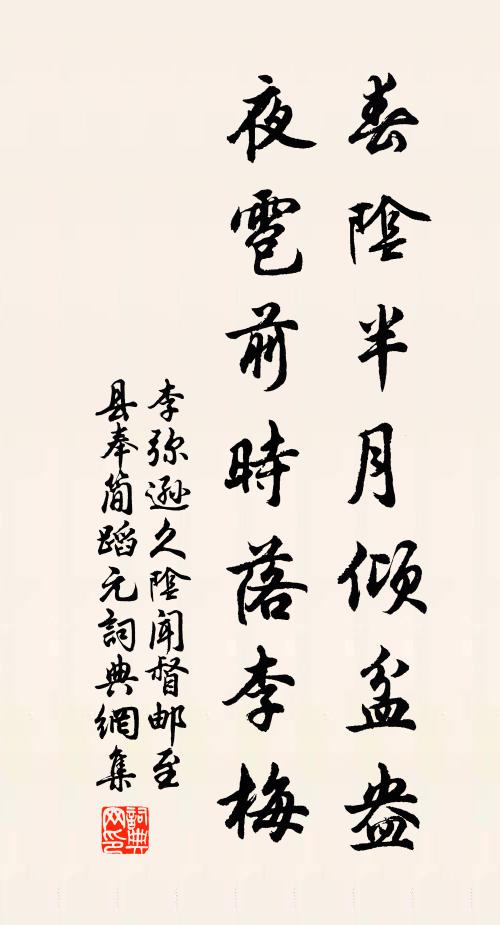 春陰半月傾盆盎
夜雹前時落李梅
李弥遜久陰闻督邮至
县奉简蹈元詞典網集
詞典网印